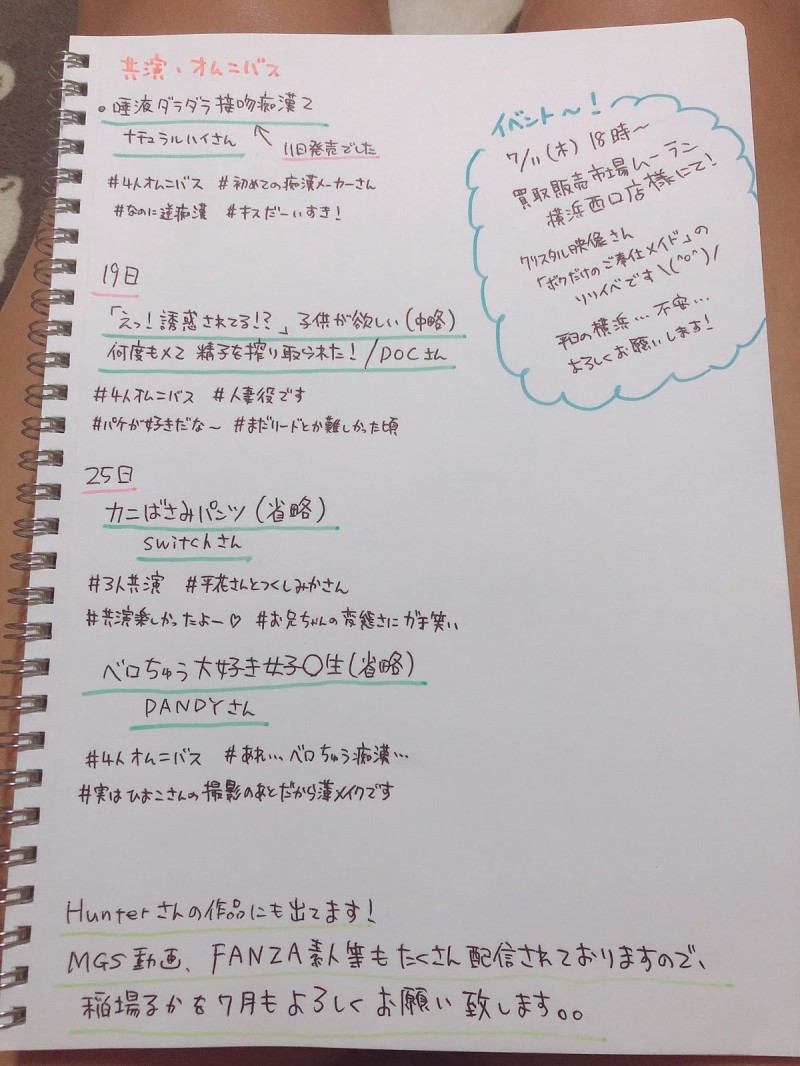 共演・オムニバス
・唾液ダラダラ接吻痴漢2
ナチュラルハイさん
11日発売でした
#4人オムニバス #初めての痴漢メーカーさん
#なのに逆痴漢 #キスだーいすき!
イベント〜!
7/11(木)18時〜
買取販売市場ムーラン
横浜西口店様にて!
クリスタル映像さん
「ボクだけのご奉仕メイド」の
リリイベです\(^o^)/
平日の横浜…不安…
よろしくお願いします!
19日
「えっ!誘惑されてる!?」子供が欲しい(中略)
何度もメて精子を搾り取られた!/DOCさん
#4人オムニバス #人妻役です
#パケが好きだな〜 #まだリードとか難しかった頃
25日
カニばさみパンツ(省略)
switchさん
#3人共演 #平花さんとつくしみかさん
#共演楽しかったよー♡ #お兄ちゃんの変態さにガチ笑い
ベロちゅう大好き女子〇生(省略)
DANDYさん
#4人オムニバス #あれ…ベロちゅう痴漢…
#実はひおこさんの撮影のあとだから薄メイクです
Hunterさんの作品にも出てます!
MGS動画、FANZA素人等もたくさん配信されておりますので、
稲場るかを7月もよろしくお願い致します。。